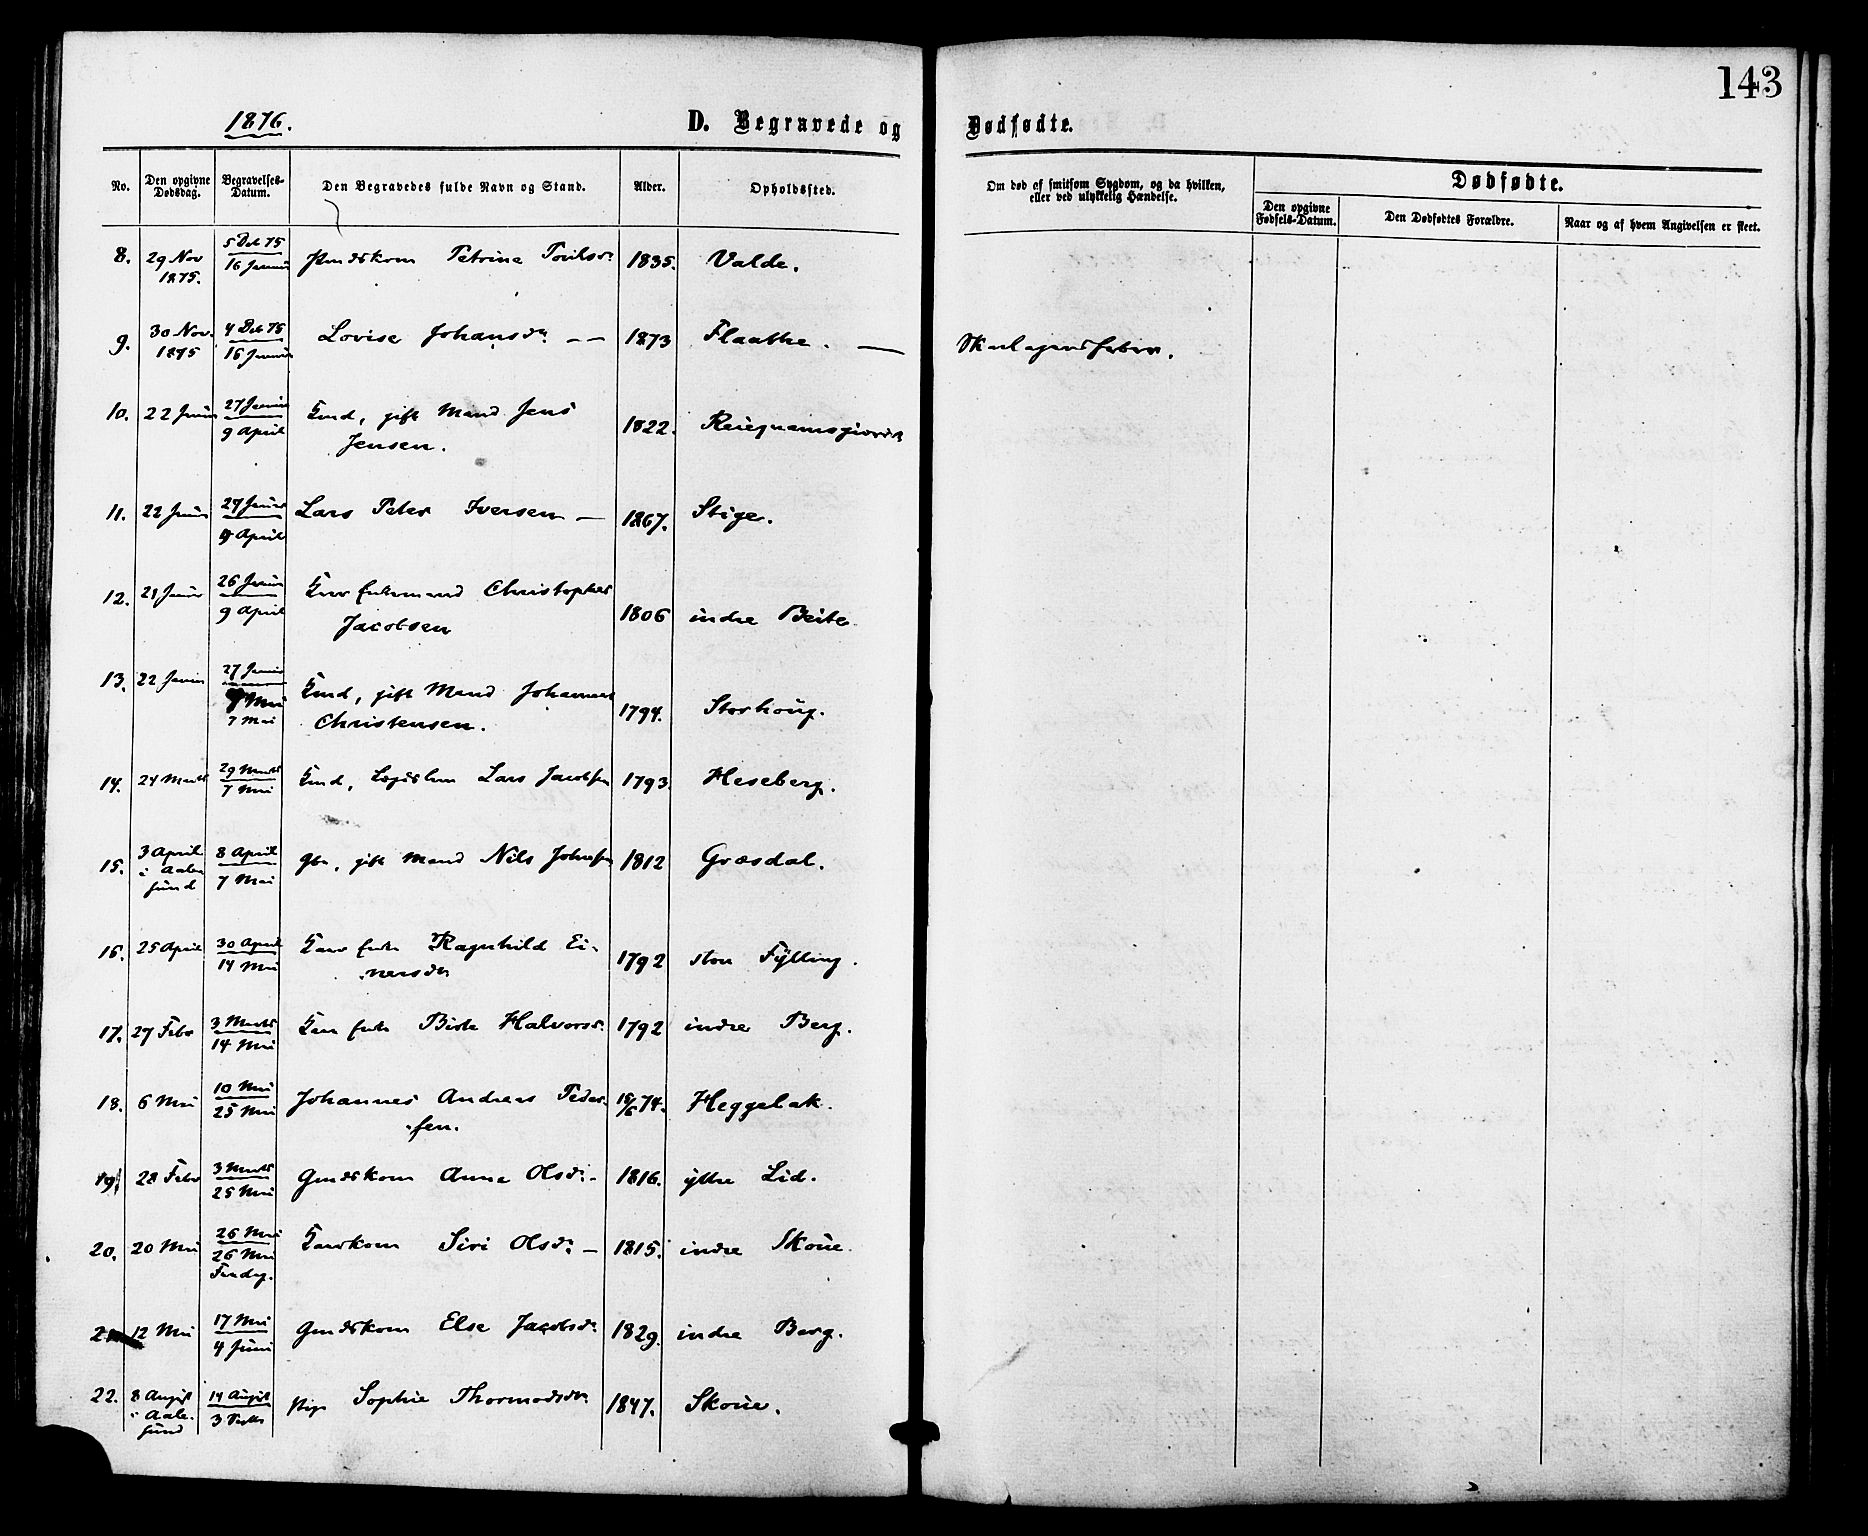 143
1876.
D. Begravede og Dødfødte.
No. Den opgivne Dødsdag. Begravelses-Datum. Den Begravedes fulde Navn og Stand. Alder. Opholdssted. Om død af smitsom Sygdom, og da hvilken, eller ved ulykkelig Hændelse. Dødfødte.
Den opgivne Fødsels-Datum. Den Dødfødtes Forældre. Naar og af hvem Angivelsen er skeet.
8. 29 Nov 5 Dcb 75 Petrine 1835. Valde.
1875. 16
9. 30 Nov. 4 Dcb 75 Lovise Johansdr — — 1873 Flaathe. — Skarlagensfeber.
1875 16
10. 22 27 Gmd, gift Mand Jens 1822.
9 April Jensen.
11. 22 27 Lars Peter Iversen — 1867. Stige.
9 April
12. 26 Christopher
9 April Jacobsen 1806 indre Beite
13. 22 27 Gmd, gift Mand Johannes
7 Mai Christensen. 1794. Storhoug.
7 Mai
14. 24 Marts 29 Marts Gmd, Lars Jacobsen 1793. Heseberg.
7 Mai
15. 3 April 8 April gift Mand Nils Johnsen 1812 Græsdal.
i Aale 7 Mai
sund
16. 25 April 30 April Ragnhild Ei-
14 Mai nersdr 1792 store Fylling.
17. 27 Febr 3 Marts Halvorsdr 1792 indre Berg.
14 Mai
18. 6 Mai 10 Mai Johannes Andreas Peder- Heggelak.
25 Mai sen.
19. 28 Febr 3 Marts Gmdskone Anne Olsdr. 1816. ytre Lid.
25 Mai
20. 20 Mai 26 Mai Siri Olsdr — 1815. indre Skoue.
26 Mai
21 12 Mai 17 Mai Gmdskone Else Jacobsdr 1829. indre Berg.
4 Juni
22. 8 August 14 August Pige Sophie Thormodsdr 1847. Skoue.
i Aale- 3
sund